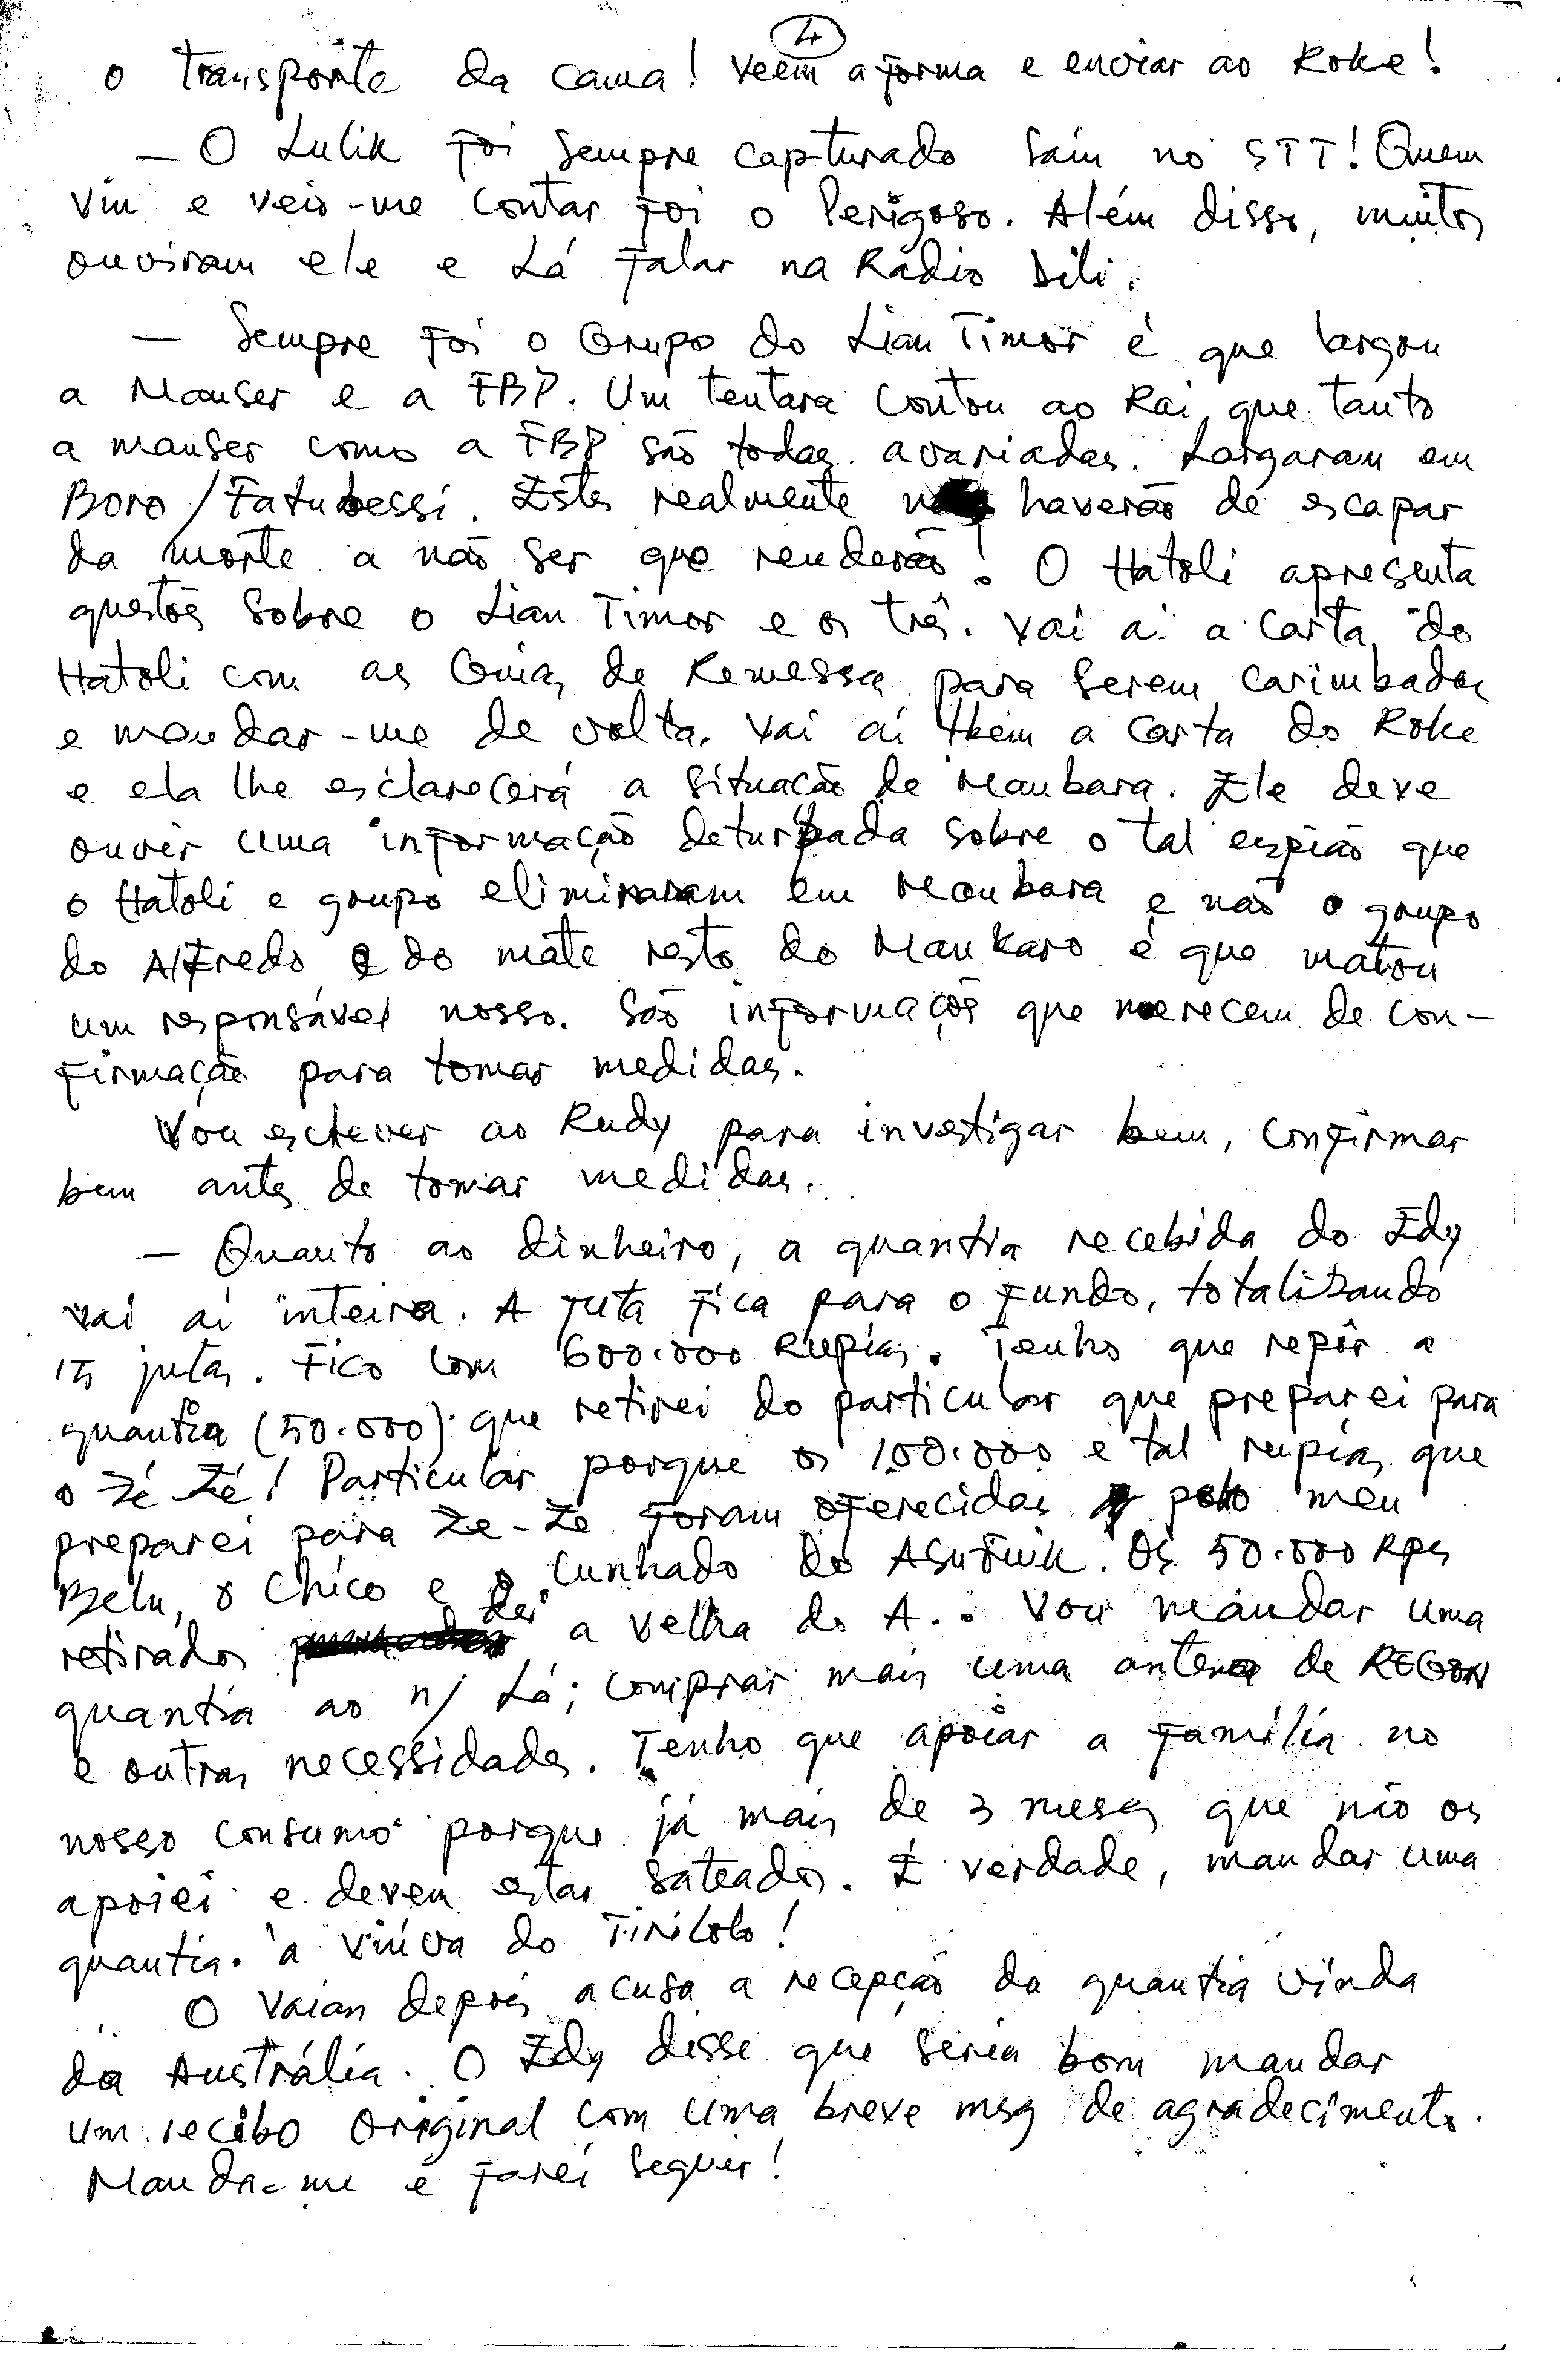 4
o transporte da cama! Veem a forma e enviar ao Roke!
— O Lulik foi sempre capturado saiu no STT! Quem
viu e veio-me contar foi o Perigoso. Além disso, muitos
ouviram ele e Lá falar na Rádio Dili.
— Sempre foi o Grupo do Lian Timor é que largou
a Mauser e a FBP. Um tentara contou ao Rai, que tanto
a mauser como a FBP são todas avariadas. Largaram em
Boro/Fatubessi. Estes realmente haverão de escapar
da morte a não ser que renderão! O Hatoli apresenta
questões sobre o Lian Timor e os três. Vai aí a carta do
Hatoli com as Guias de Remessa para serem carimbadas
e mandar-me de volta. Vai aí tbém a carta do Roke
e ela lhe esclarecerá a situação de Maubara. Ele deve
ouvir uma informação deturpada sobre o tal espião que
o Hatoli e grupo eliminaram em Maubara e não o grupo
do Alfredo e do mate resto do Maukaro é que matou
um responsável nosso. São informações que merecem de con-
firmação para tomar medidas.
Vou escrever ao Rudy para investigar bem, confirmar
bem antes de tomar medidas.
— Quanto ao dinheiro, a quantia recebida do Edy
vai aí inteira. A juta fica para o fundo, totalizando
15 jutas. Fico com 600.000 Rupias. Tenho que repôr a
quantia (50.000) que retirei do particular que preparei para
o Zé-Zé! Particular porque os 100.000 e tal rupias que
preparei para Ze-Ze foram oferecidas pelo meu
Belu, o Chico e o cunhado do Asufuik. Os 50.000 Rps
retirados dei a velha do A.. Vou mandar uma
quantia ao n/ Lá; comprar mais uma antena de REGON
e outras necessidades. Tenho que apoiar a família no
nosso consumo porque já mais de 3 meses que não os
apoiei e devem estar sateados. É verdade, mandar uma
quantia à viúva do Firiloto!
O Vaian depois acusa a recepção da quantia vinda
da Austrália. O Edy disse que seria bom mandar
um recibo original com uma breve msg de agradecimento.
Manda-me e farei seguir!